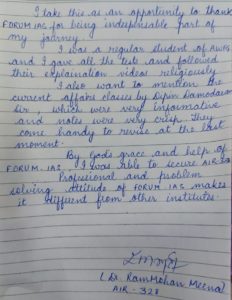 I take this as an opportunity to thank
FORUM IAS for being indispensable part of
my journey.
I was a regular student of AWFG
and I gave all the tests and followed
their explaination videos religiously
I also want to mention the
current affairs classes by Bipin Damodaran
sir, which were very informative
and notes were very crisp. They
come handy to revise at the last
moment.
By God's grace and help of
FORUM IAS I was able to secure AIR-328
Professional and problem
solving attitude of FORUM IAS makes
it different from other institutes.
(Dr. RamMohan Meena)
AIR-328